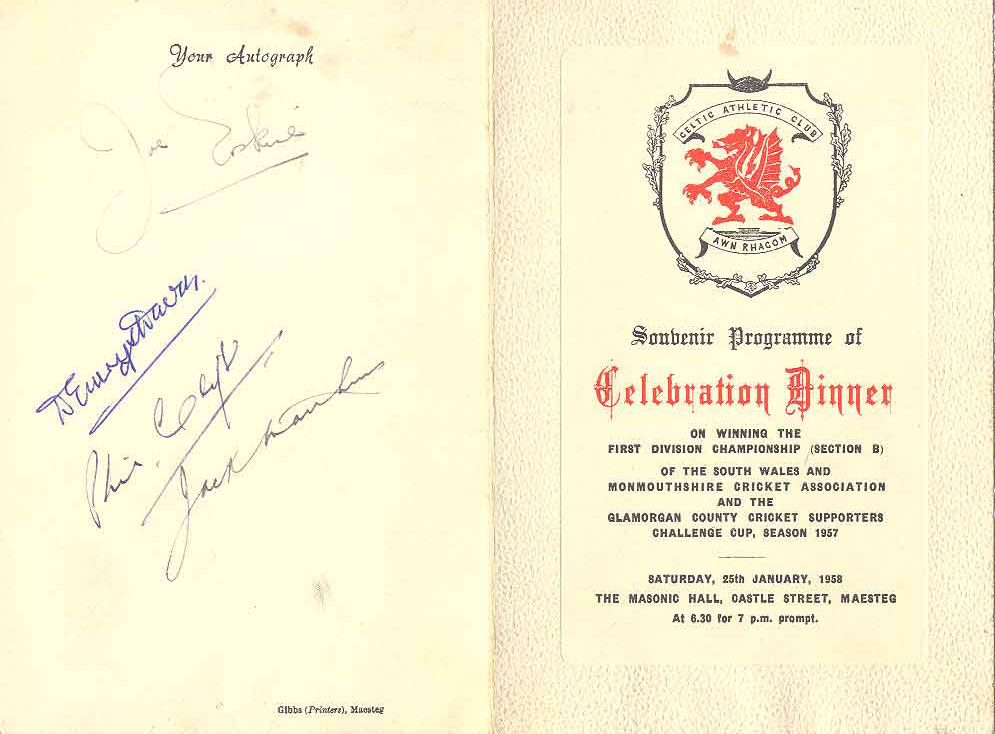 Your Autograph
Joe Erskine
D Emrys Evans.
Phil Clift
Jack
Gibbs (Printers), Maesteg
CELTIC ATHLETIC CLUB
AWN RHAGOM
Souvenir Programme of
Celebration Dinner
ON WINNING THE
FIRST DIVISION CHAMPIONSHIP (SECTION B)
OF THE SOUTH WALES AND
MONMOUTHSHIRE CRICKET ASSOCIATION
AND THE
GLAMORGAN COUNTY CRICKET SUPPORTERS
CHALLENGE CUP, SEASON 1957
SATURDAY, 25th JANUARY, 1958
THE MASONIC HALL, CASTLE STREET, MAESTEG
At 6.30 for 7 p.m. prompt.